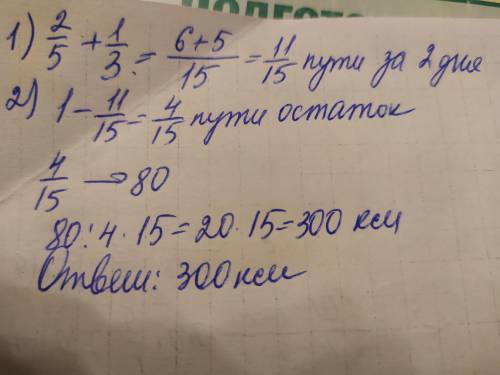 подгото
1) 2/5 + 1/3 = (6+5)/15 = 11/15 пути за 2 дня
2) 1 - 11/15 = 4/15 пути остаток
4/15 → 80
80:4·15=20·15=300 км
Ответ: 300км